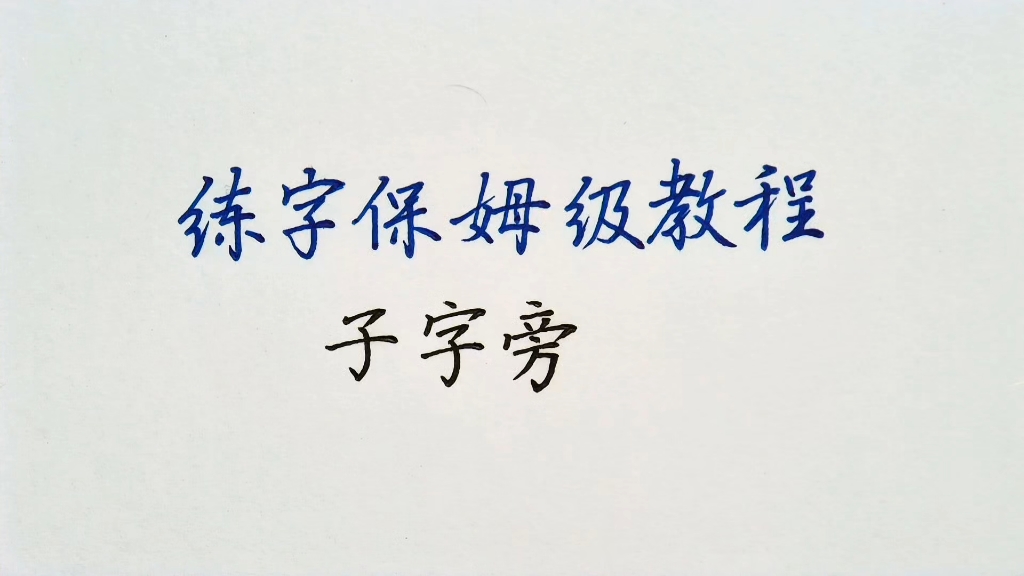 练字保姆级教程
子字旁